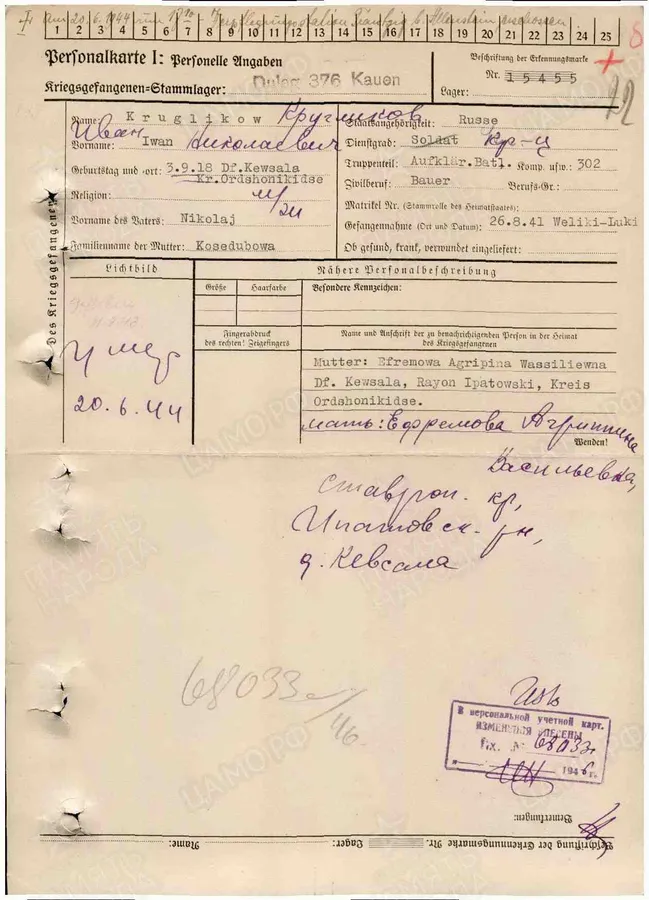 am 20.6.1944 um 17.10
erschossen
1 2 3 4 5 6 7 8 9 10 11 12 13 14 15 16 17 18 19 20 21 22 23 24 25
Personalkarte I: Personelle Angaben
Kriegsgefangenen=Stammlager: Dulag 376 Kauen
Beschriftung der Erkennungsmarke
Nr. 15455
Lager:
22
Des Kriegsgefangenen
Name: Kruglikow Кругликов
Vorname: Iwan Иван Николаевич
Geburtstag und =ort: 3.9.18 Df.Kewsala
Kr.Ordshonikidse
Religion:
Vorname des Vaters: Nikolaj
Familienname der Mutter: Kosedubowa
Staatsangehörigkeit: Russe
Dienstgrad: Soldat кр-ц
Truppenteil: Aufklär.Batl. Komp. usw.: 302
Zivilberuf: Bauer Berufs=Gr.:
Matrikel Nr. (Stammrolle des Heimatstaates):
Gefangennahme (Ort und Datum): 26.8.41 Weliki-Luki
Ob gesund, krank, verwundet eingeliefert:
Lichtbild
Nähere Personalbeschreibung
Größe Haarfarbe Besondere Kennzeichen:
Fingerabdruck
des rechten! Zeigefingers
Name und Anschrift der zu benachrichtigenden Person in der Heimat
des Kriegsgefangenen
Mutter: Efremowa Agripina Wassiliewna
Df. Kewsala, Rayon Ipatowski, Kreis
Ordshonikidse.
умер
20.6.44
мать: Ефремова Агрипина
Wenden!
Васильевна,
Ставроп. кр,
Ипатовск. рн,
д. Кевсала
68033
46
В персональной учетной карт.
ИЗМЕНЕНИЯ ВНЕСЕНЫ
Вх. № 68033
1946 г.
Bemerkungen:
Beschriftung der Erkennungsmarke Nr. Lager: Name:
ПАМЯТЬ
НАРОДА
ЦАМО РФ